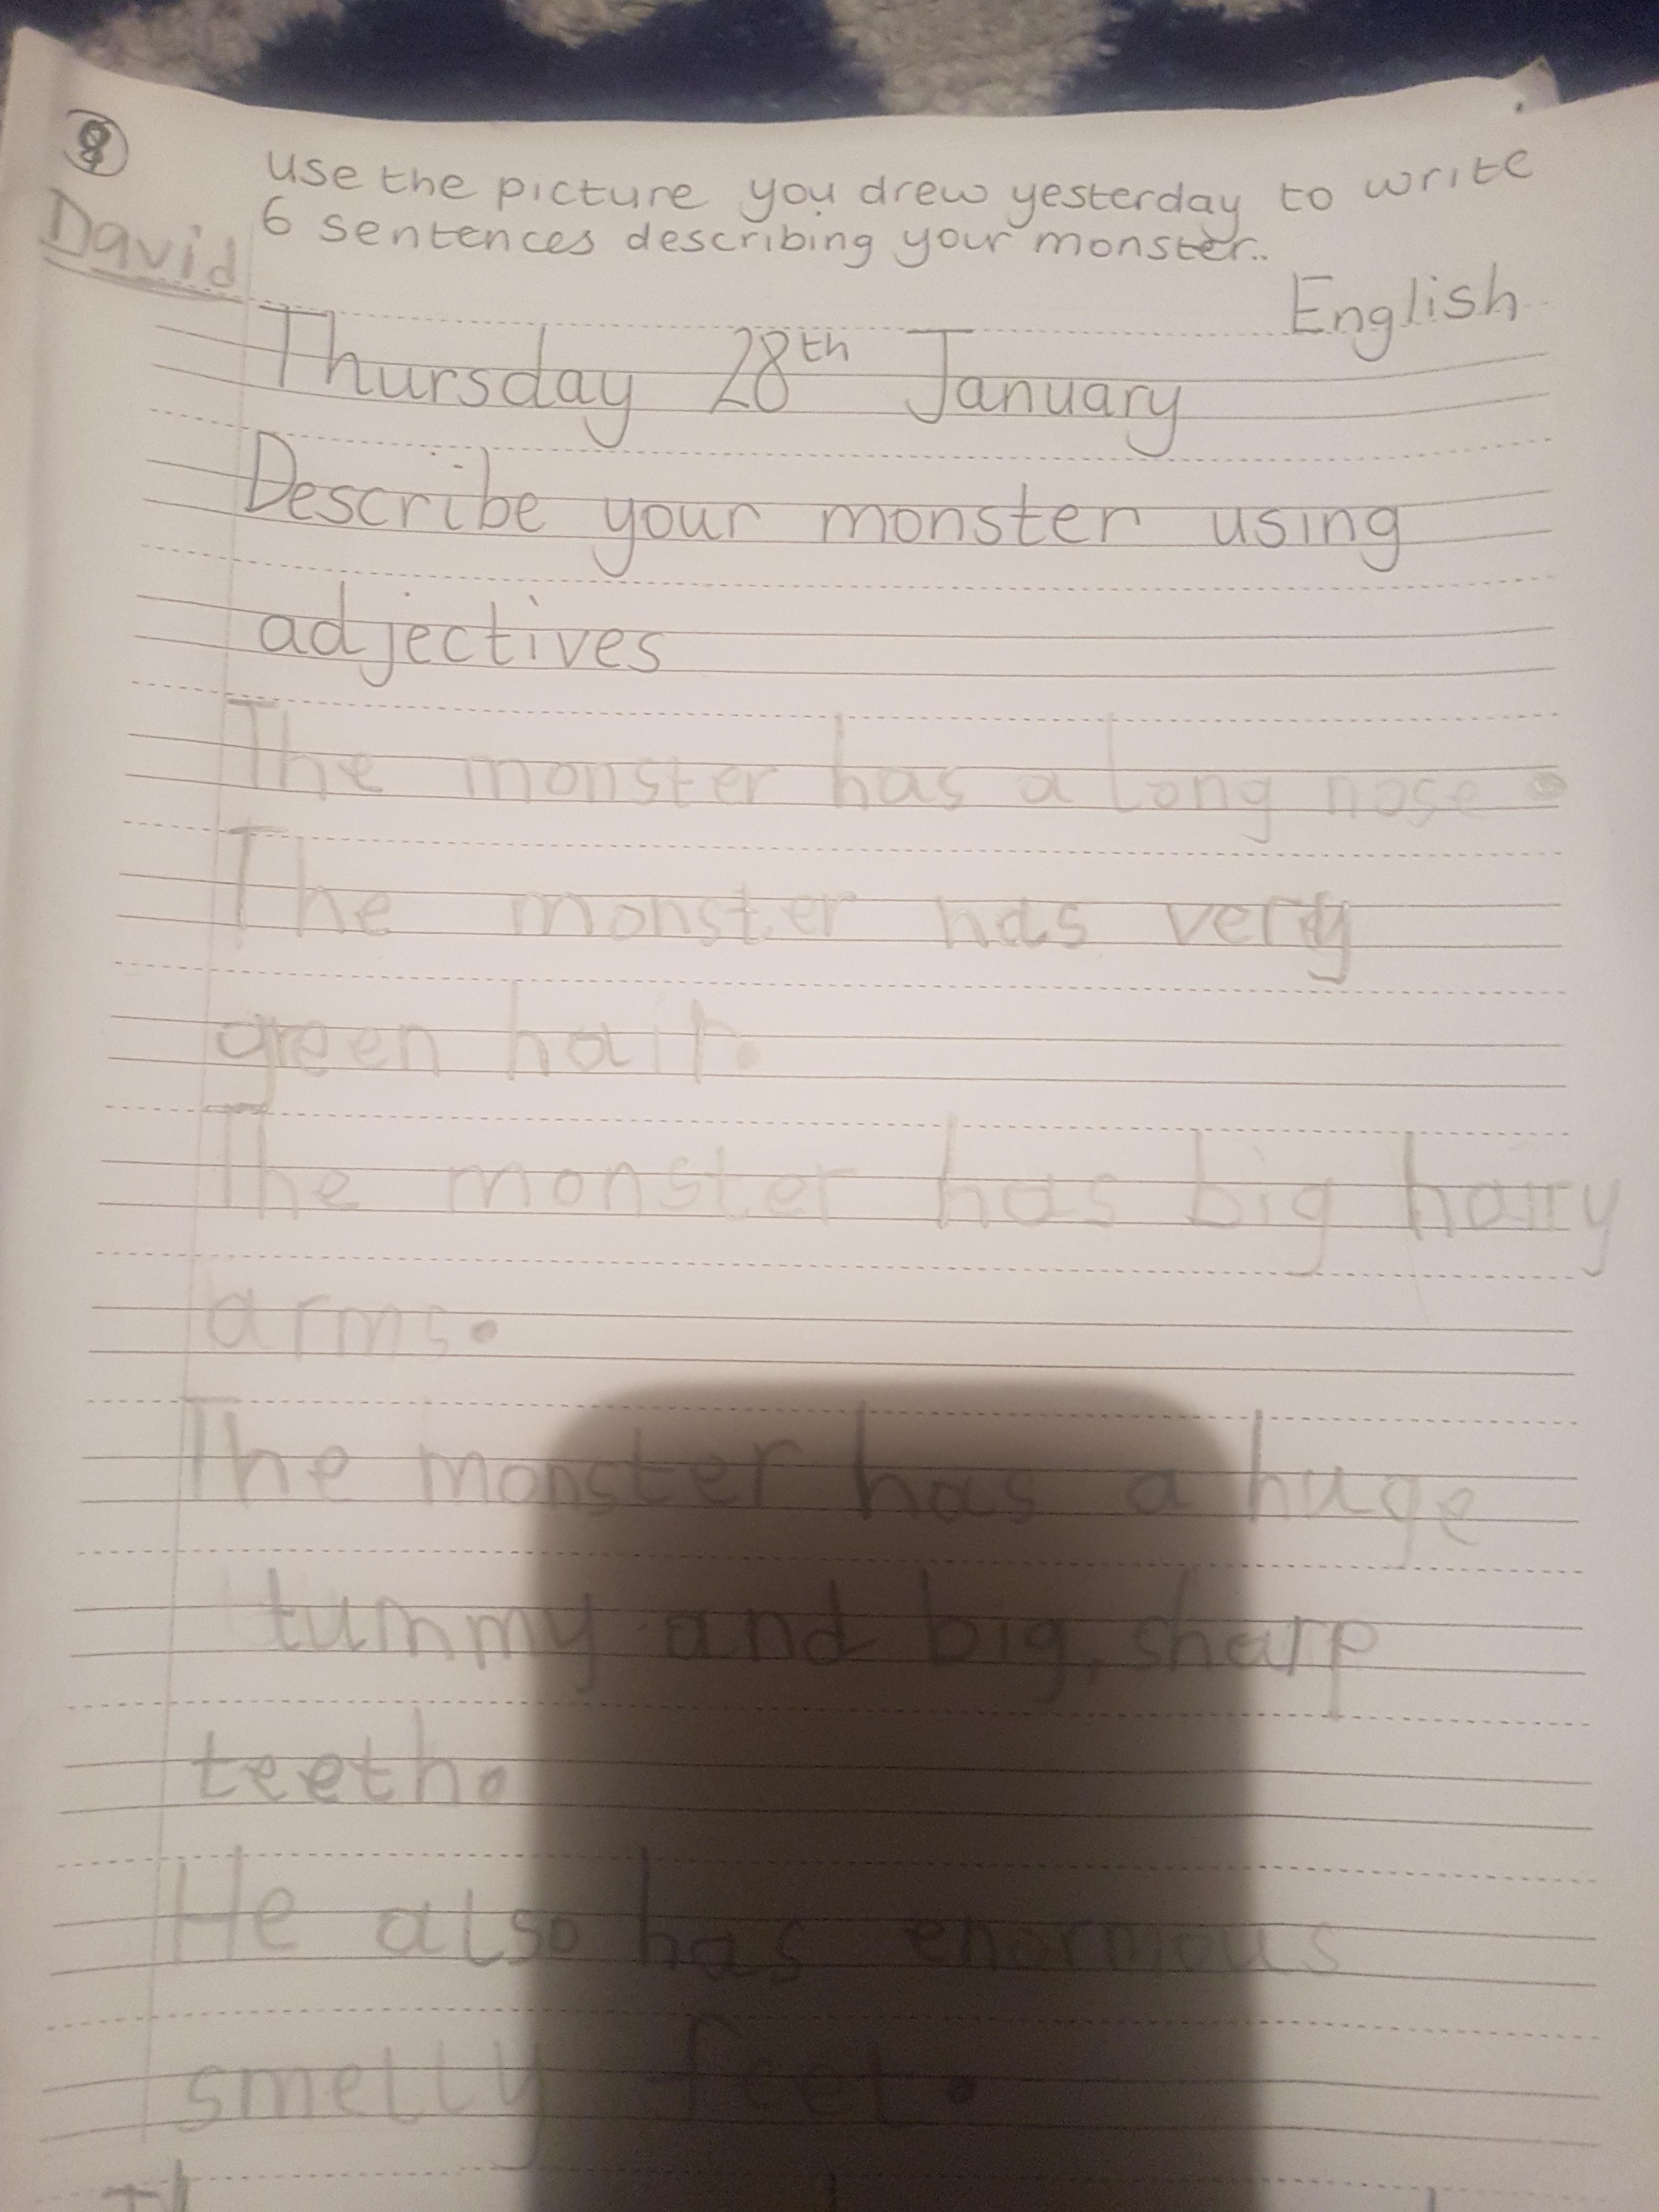 8
use the picture you drew yesterday to write
David
6 sentences describing your monster..
English
Thursday 28th January
Describe your monster using
adjectives
The monster has a long nose.
The monster has very
green hair.
The monster has big hairy
arms.
The monster has a huge
tummy and big, sharp
teeth.
He also has enormous
smelly feet.